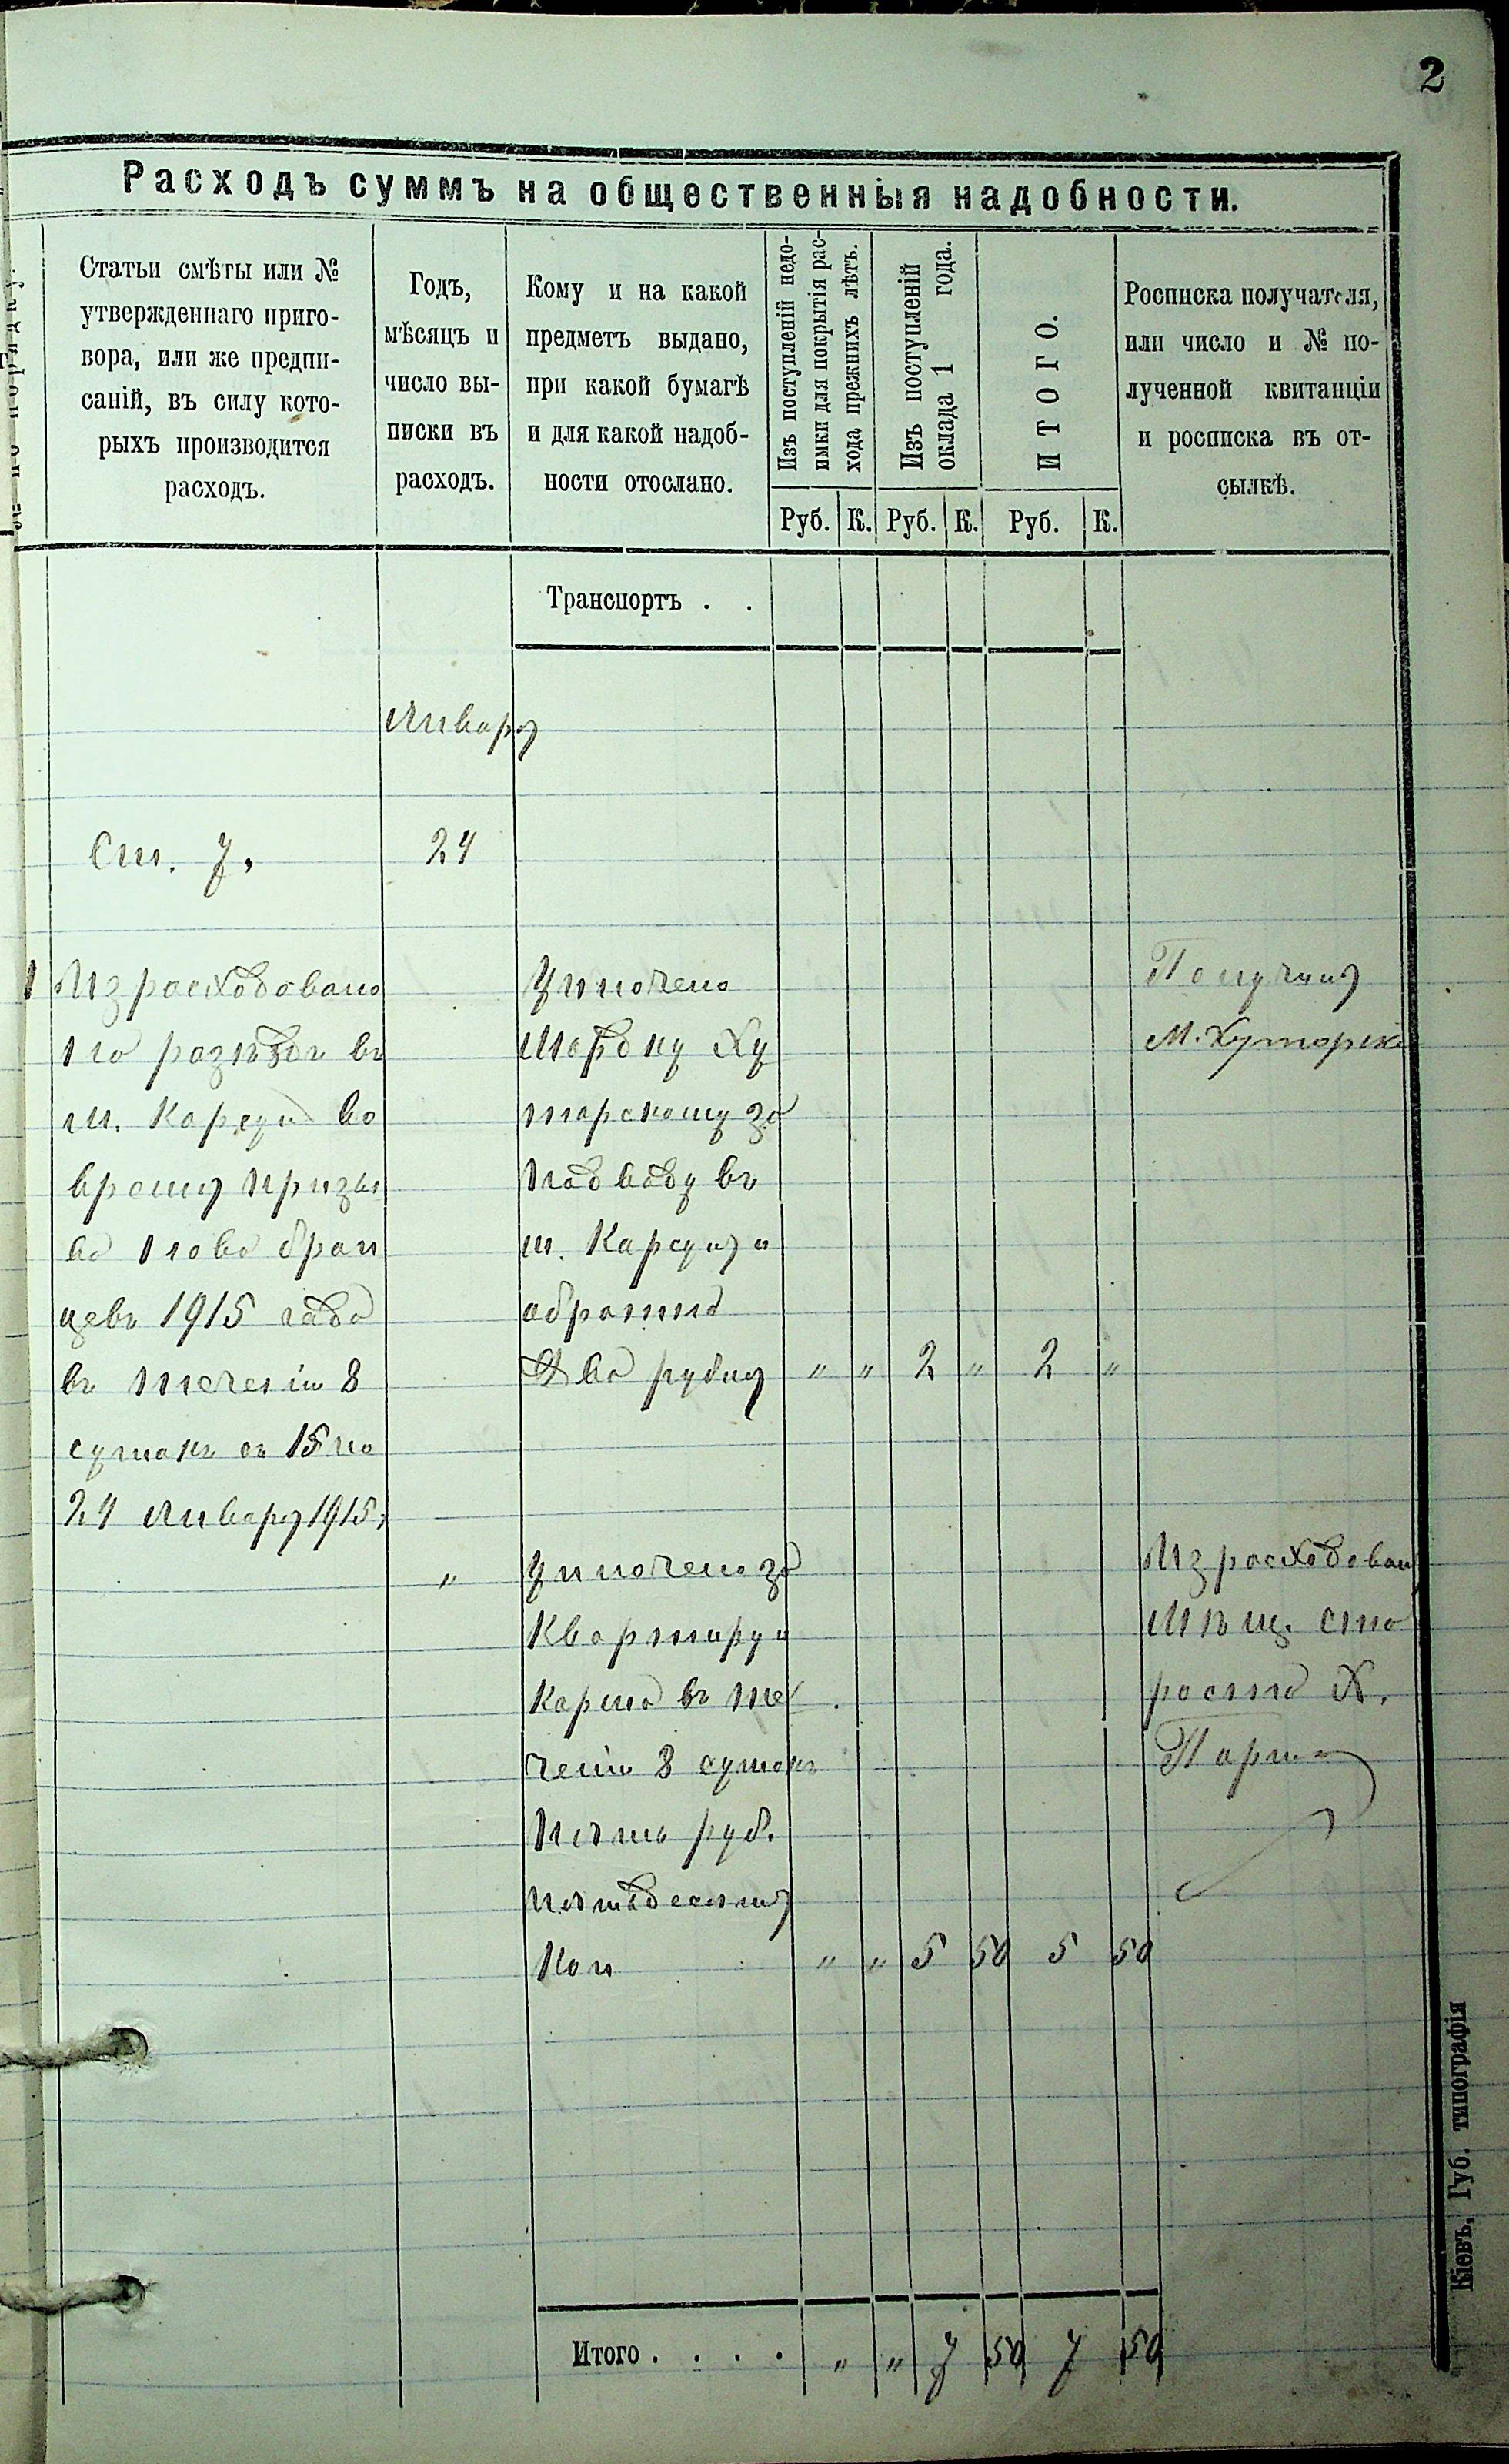 2
Расходъ суммъ на общественныя надобности.
Статьи смѣты или №
утвержденнаго приго-
вора, или же предпи-
саній, въ силу кото-
рыхъ производится
расходъ.
Годъ,
мѣсяцъ и
число вы-
писки въ
расходъ.
Кому и на какой
предметъ выдано,
при какой бумагѣ
и для какой надоб-
ности отослано.
Изъ поступленій недо-
имки для покрытія рас-
хода прежнихъ лѣтъ.
Изъ поступленій
оклада 1 года.
ИТОГО.
Росписка получателя,
или число и № по-
лученной квитанціи
и росписка въ от-
сылкѣ.
Руб. К. Руб. К. Руб. К.
Транспортъ . .
Января
Ст. 7. 24
1 Израсходовано
на разъѣзды въ
м.
во
время призы
ва новобран
цевъ 1915 года
въ теченіи 8
сутокъ съ 15 по
24 Января 1915,
Уплочено
Мордку Ху
торскому за
подводу въ
м.
и
обратно
Два рубля " " 2 " 2 "
Получилъ
М. Хуторск
" Уплочено за
квартиру и
корма въ те
ченіи 8 сутокъ
пять руб.
пятьдесятъ
коп " " 5 50 5 50
Израсходовал
Мѣщ. ста
роста Х.
Итого . . . . " " 7 50 7 50
Кіевъ, Губ. типографія